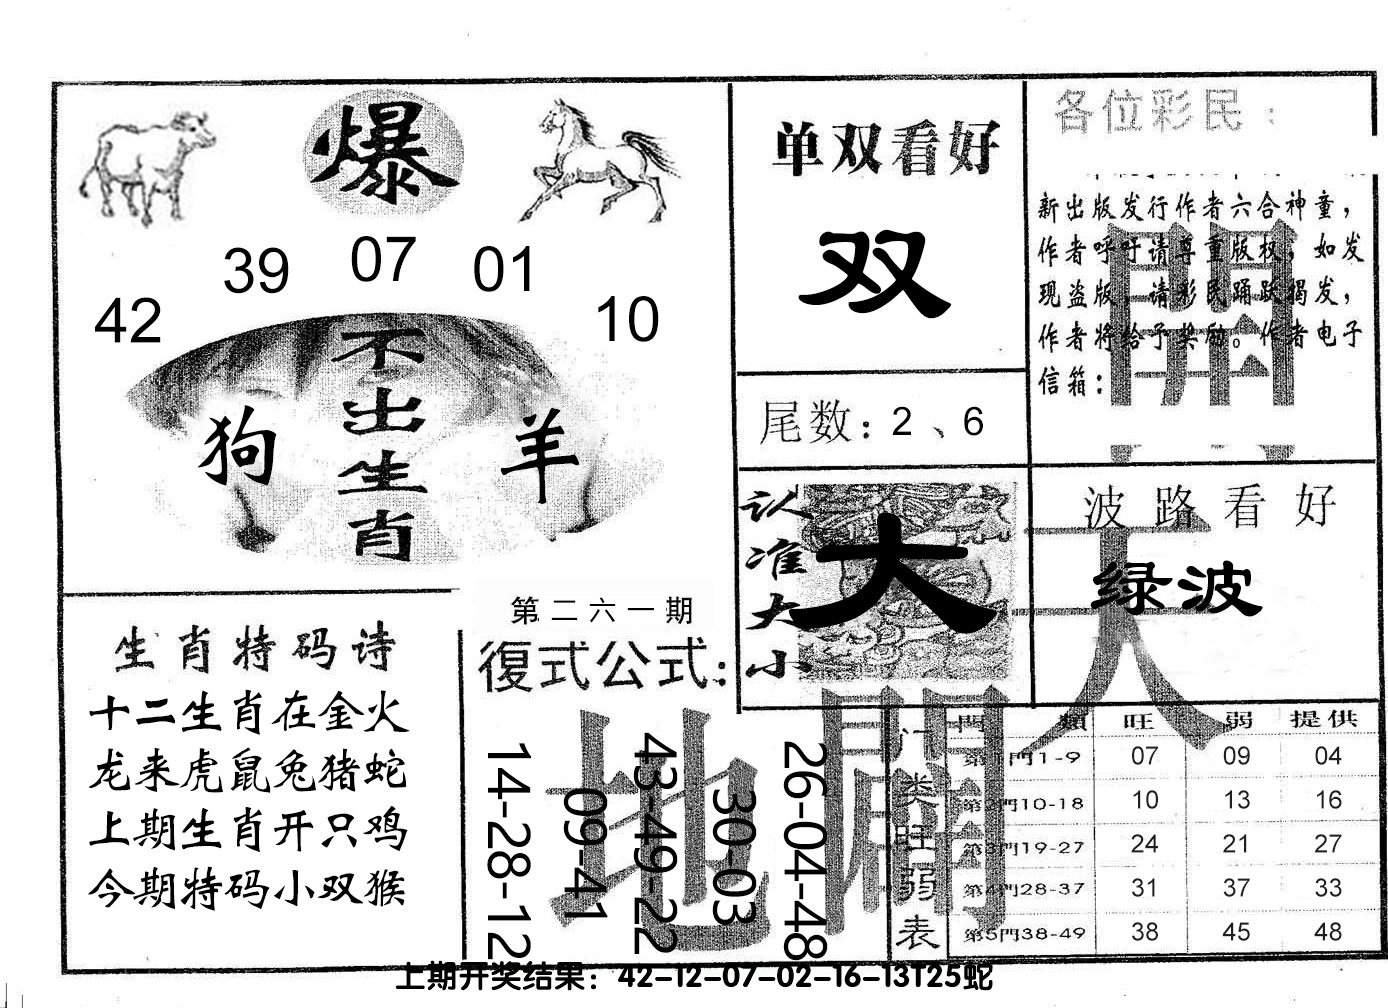 爆
42 39 07 01 10
不出生肖
狗
羊
单双看好
双
尾数：2、6
各位彩民：
新出版发行作者六合神童，
作者呼吁请尊重版权，如发
现盗版，请彩民踊跃揭发，
作者将给予奖励。作者电子
信箱：
開
认准大小
大
波路看好
绿波
天
生肖特码诗
十二生肖在金火
龙来虎鼠兔猪蛇
上期生肖开只鸡
今期特码小双猴
第二六一期
復式公式：
14-28-12
09-41
43-49-22
30-03
26-04-48
地
闢
门类旺弱表
門 類 旺 弱 提供
第1門1-9 07 09 04
第2門10-18 10 13 16
第3門19-27 24 21 27
第4門28-37 31 37 33
第5門38-49 38 45 48
上期开奖结果：42-12-07-02-16-13T25蛇